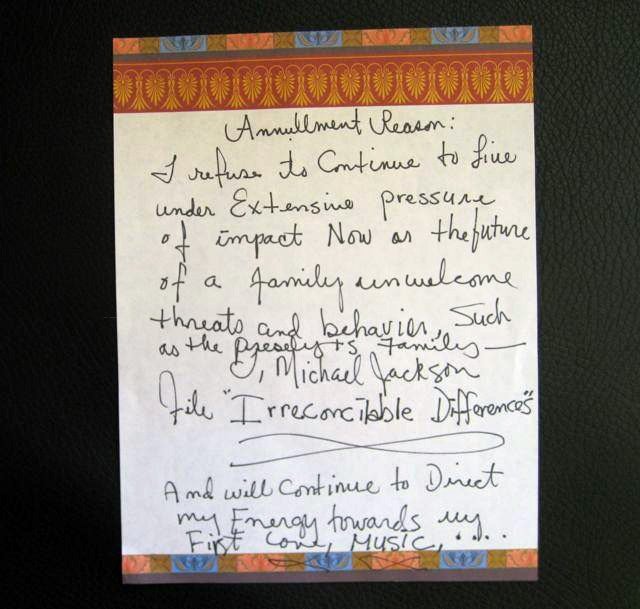 Annullment Reason:
I refuse to Continue to live
under Extensive pressure
of impact Now or the future
of a family unwelcome
threats and behavior, Such
as the Family —
I, Michael Jackson
File "Irreconcibble Differences"
And will Continue to Direct
my Energy towards my
First Love, MUSIC, . . . .